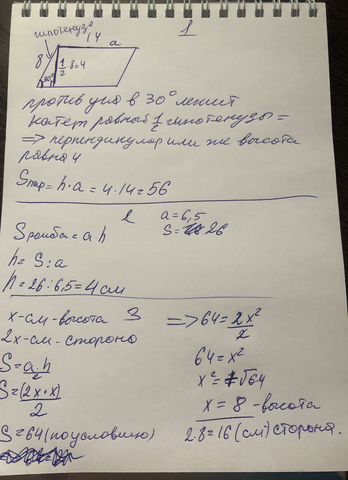 1
гипотенуза
14
a
8
1/2 8=4
30°
против угла в 30° лежит
катет равный 1/2 гипотенузы =
=> перпендикуляр или же высота
равна 4
Sпар = h·a = 4·14=56
2
a=6,5
S=26
Sромба = a·h
h= S:a
h= 26:6,5=4см
3
x-см-высота
2x-см-сторона
S=a·h/2
S=(2x·x)/2
S=64 (по условию)
=> 64=2x²/2
64=x²
x²=√64
x=8-высота
2·8=16(см) сторона.